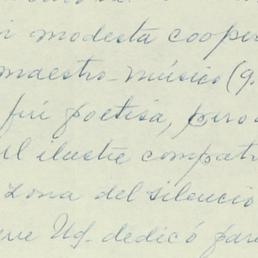 modesta cooper
maestro-músico (q.
fuí poetisa, pero
il ilustre compatr
zona del silencio
Ud. dedicó para